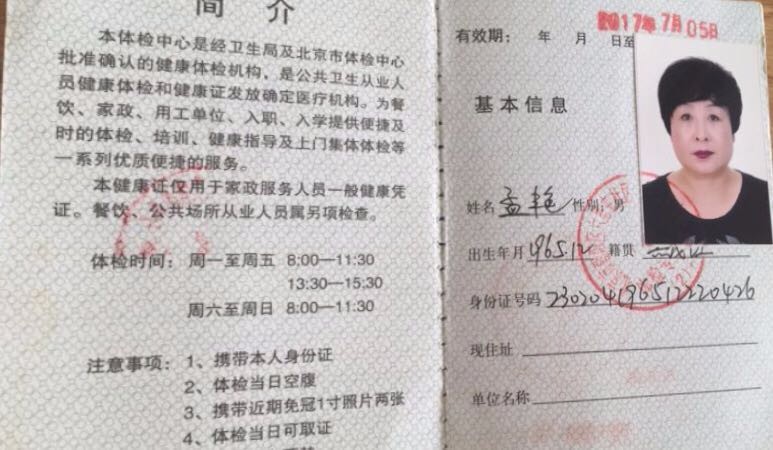 简 介
本体检中心是经卫生局及北京市体检中心
批准确认的健康体检机构、是公共卫生从业人
员健康体检和健康证发放确定医疗机构。为餐
饮、家政、用工单位、入职、入学提供便捷及
时的体检、培训、健康指导及上门集体体检等
一系列优质便捷的服务。
本健康证仅用于家政服务人员一般健康凭
证。餐饮、公共场所从业人员属另项检查。
体检时间：周一至周五 8:00—11:30
13:30—15:30
周六至周日 8:00—11:30
注意事项：1、携带本人身份证
2、体检当日空腹
3、携带近期免冠1寸照片两张
4、体检当日可取证
2017年7月05日
有效期： 年 月 日至
基本信息
姓名 孟艳 性别：男
出生年月 1965.12 籍贯
身份证号码 230204196512220426
现住址
单位名称